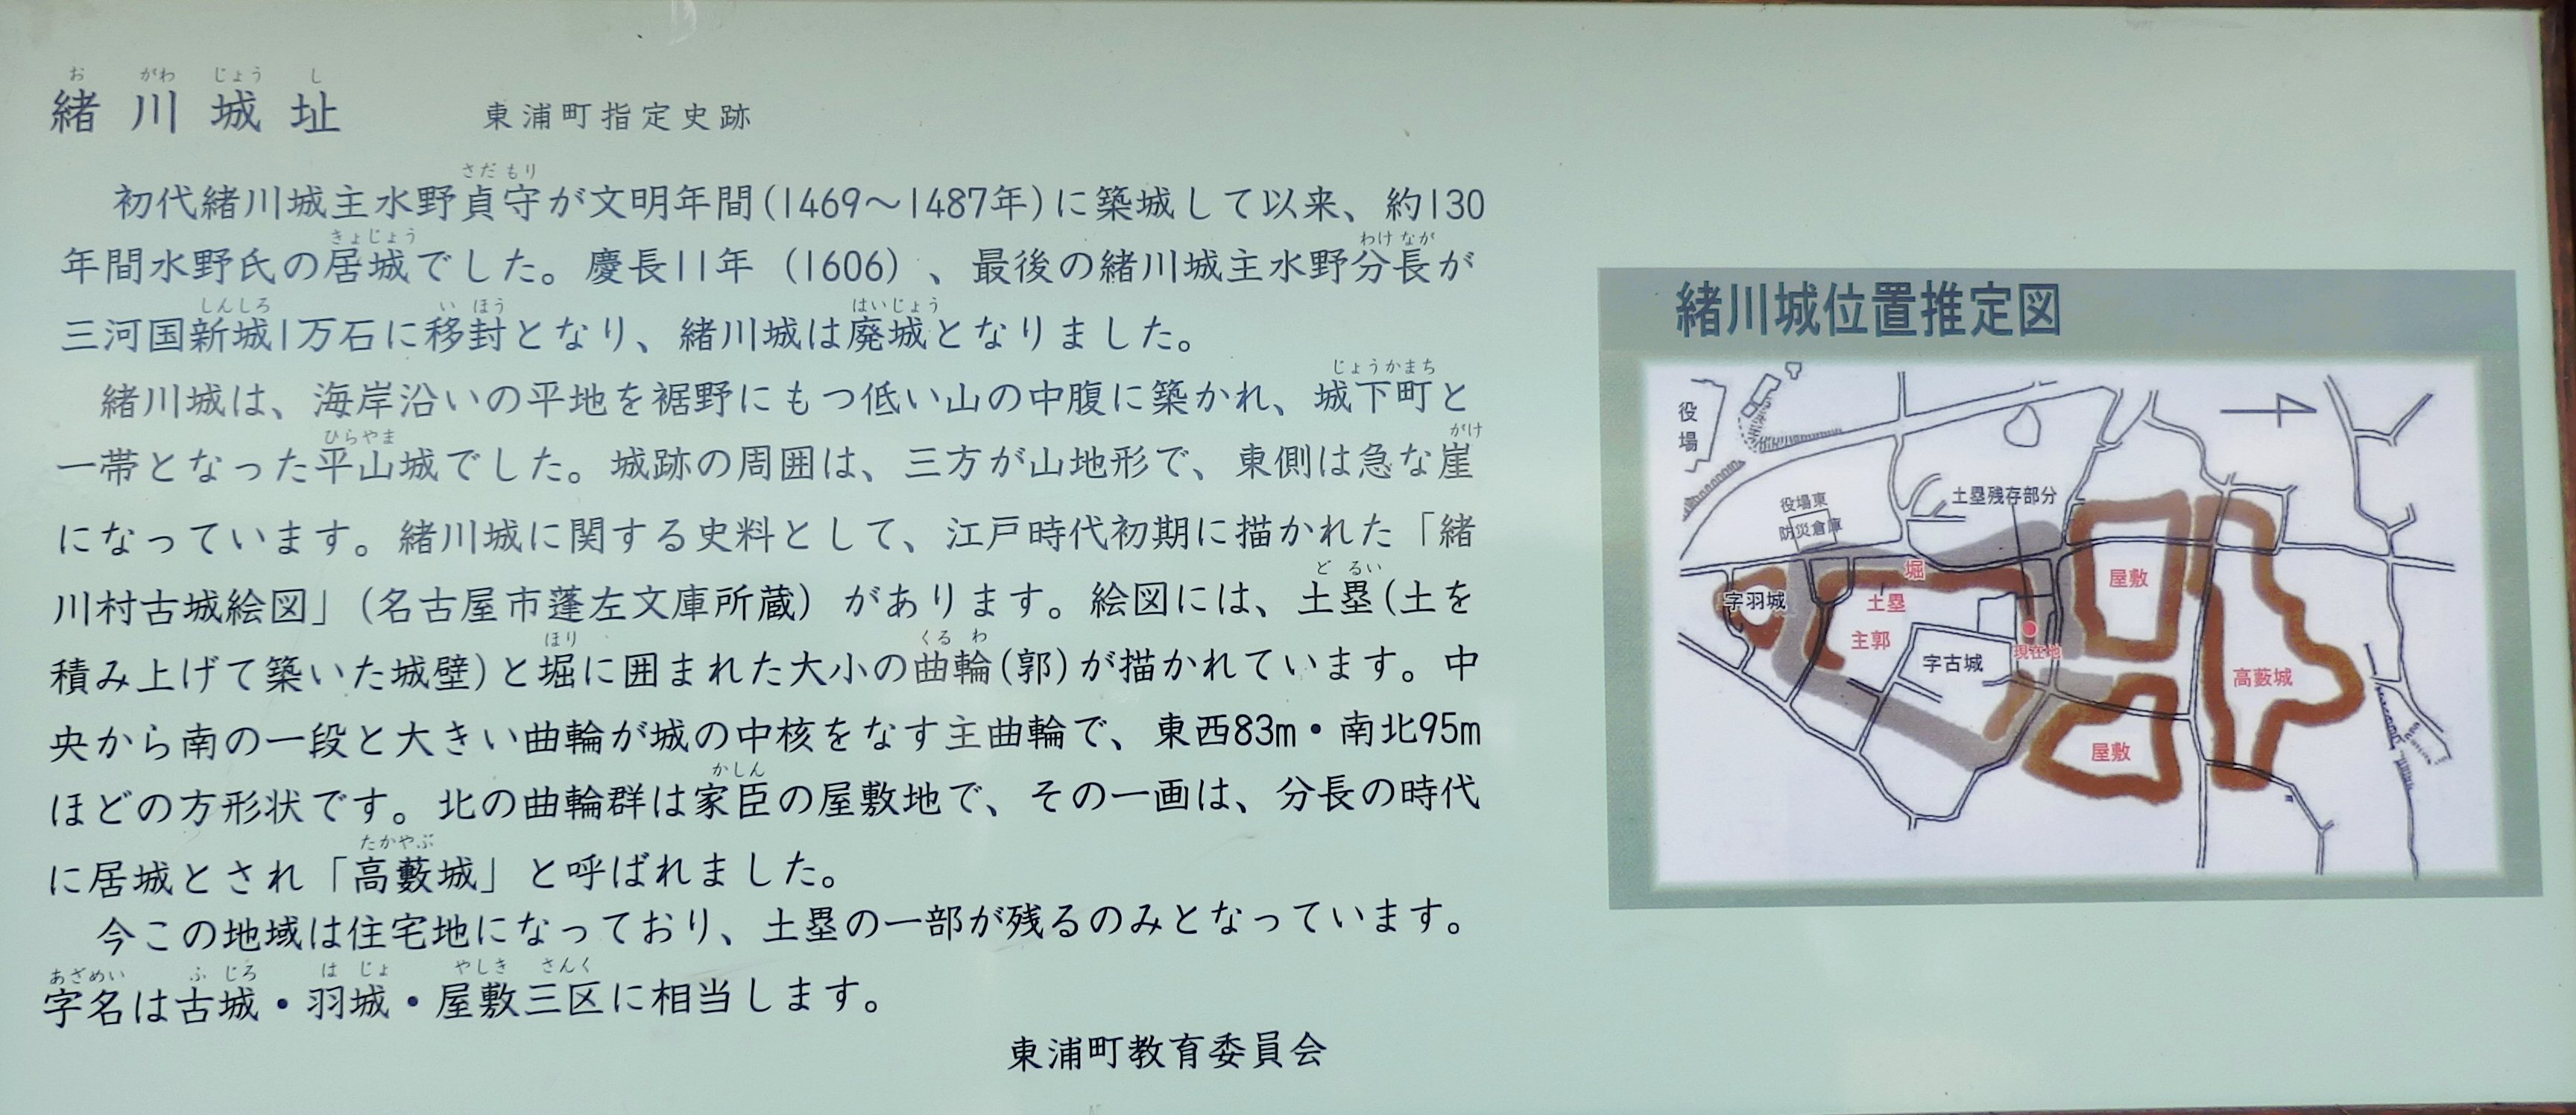 お がわ じょう し
緒川城址 東浦町指定史跡
さだ もり
初代緒川城主水野貞守が文明年間(1469～1487年)に築城して以来、約130
きょじょう わけ なが
年間水野氏の居城でした。慶長11年（1606）、最後の緒川城主水野分長が
しんしろ い ほう はいじょう
三河国新城1万石に移封となり、緒川城は廃城となりました。
じょうかまち
緒川城は、海岸沿いの平地を裾野にもつ低い山の中腹に築かれ、城下町と
ひらやま がけ
一帯となった平山城でした。城跡の周囲は、三方が山地形で、東側は急な崖
になっています。緒川城に関する史料として、江戸時代初期に描かれた「緒
ど るい
川村古城絵図」(名古屋市蓬左文庫所蔵）があります。絵図には、土塁(土を
ほり くる わ
積み上げて築いた城壁)と堀に囲まれた大小の曲輪(郭)が描かれています。中
央から南の一段と大きい曲輪が城の中核をなす主曲輪で、東西83m・南北95m
かしん
ほどの方形状です。北の曲輪群は家臣の屋敷地で、その一画は、分長の時代
たかやぶ
に居城とされ「高藪城」と呼ばれました。
今この地域は住宅地になっており、土塁の一部が残るのみとなっています。
あざめい ふ じろ は じょ やしき さんく
字名は古城・羽城・屋敷三区に相当します。
東浦町教育委員会
緒川城位置推定図
役場
役場東
防災倉庫
土塁残存部分
堀
屋敷
字羽城
土塁
主郭
現在地
字古城
高藪城
屋敷